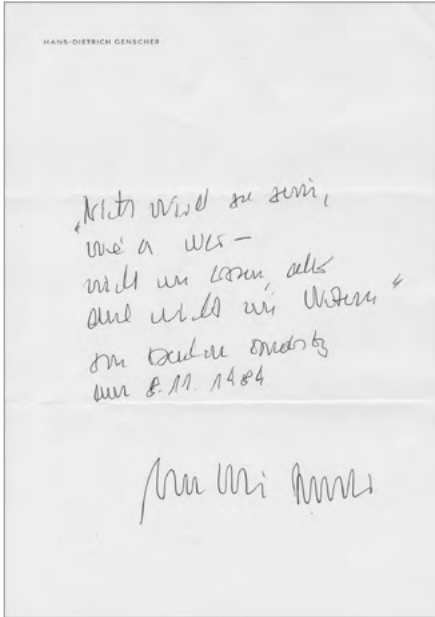 HANS-DIETRICH GENSCHER
„Nichts wird so sein,
wie es war –
nicht im Osten, aber
auch nicht im Westen“
im Deutschen Bundestag
am 8.11.1989